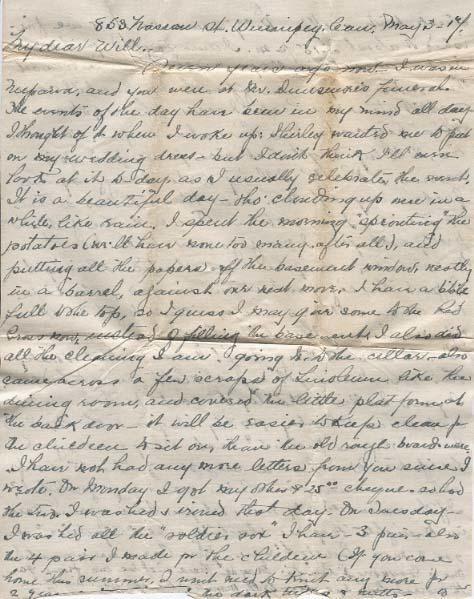 853 Nassau St. Winnipeg, Can, May 3 - 17/
My dear Will: -
years ago now - I was in
Neepawa, and you were at Mr. Dinsmore's funeral.
The events of the day have been in my mind all day
I thought of it when I woke up: Shirley wanted me to put
on my wedding dress - but I don't think I'll even
look at it to-day as I usually celebrate the event.
It is a beautiful day - tho' clouding up once in a
while, like rain. I spent the morning "sprouting" the
potatoes (we'll have none too many after all), and
putting all the papers off the basement window, neatly
in a barrel, against our next move. I have a
full to the top, so I guess I may give some to the Red
Cross now, instead of filling the basement. I also did
all the cleaning I am going to do the cellar - also
came across a few scraps of Linoleum like the
dining room, and covered the little platform at
the back door - it will be easier to keep clean for
the children to sit on, than the old rough boards were.
I have not had any more letters from you since I
wrote. On Monday I got my other $25.00 cheque so
the I washed & ironed that day. On Tuesday -
I washed all the "soldier sox" I have - 3 pair - also
the 4 pair I made for the children (If you come
home this summer, I won't need to knit any more for
a year the dark